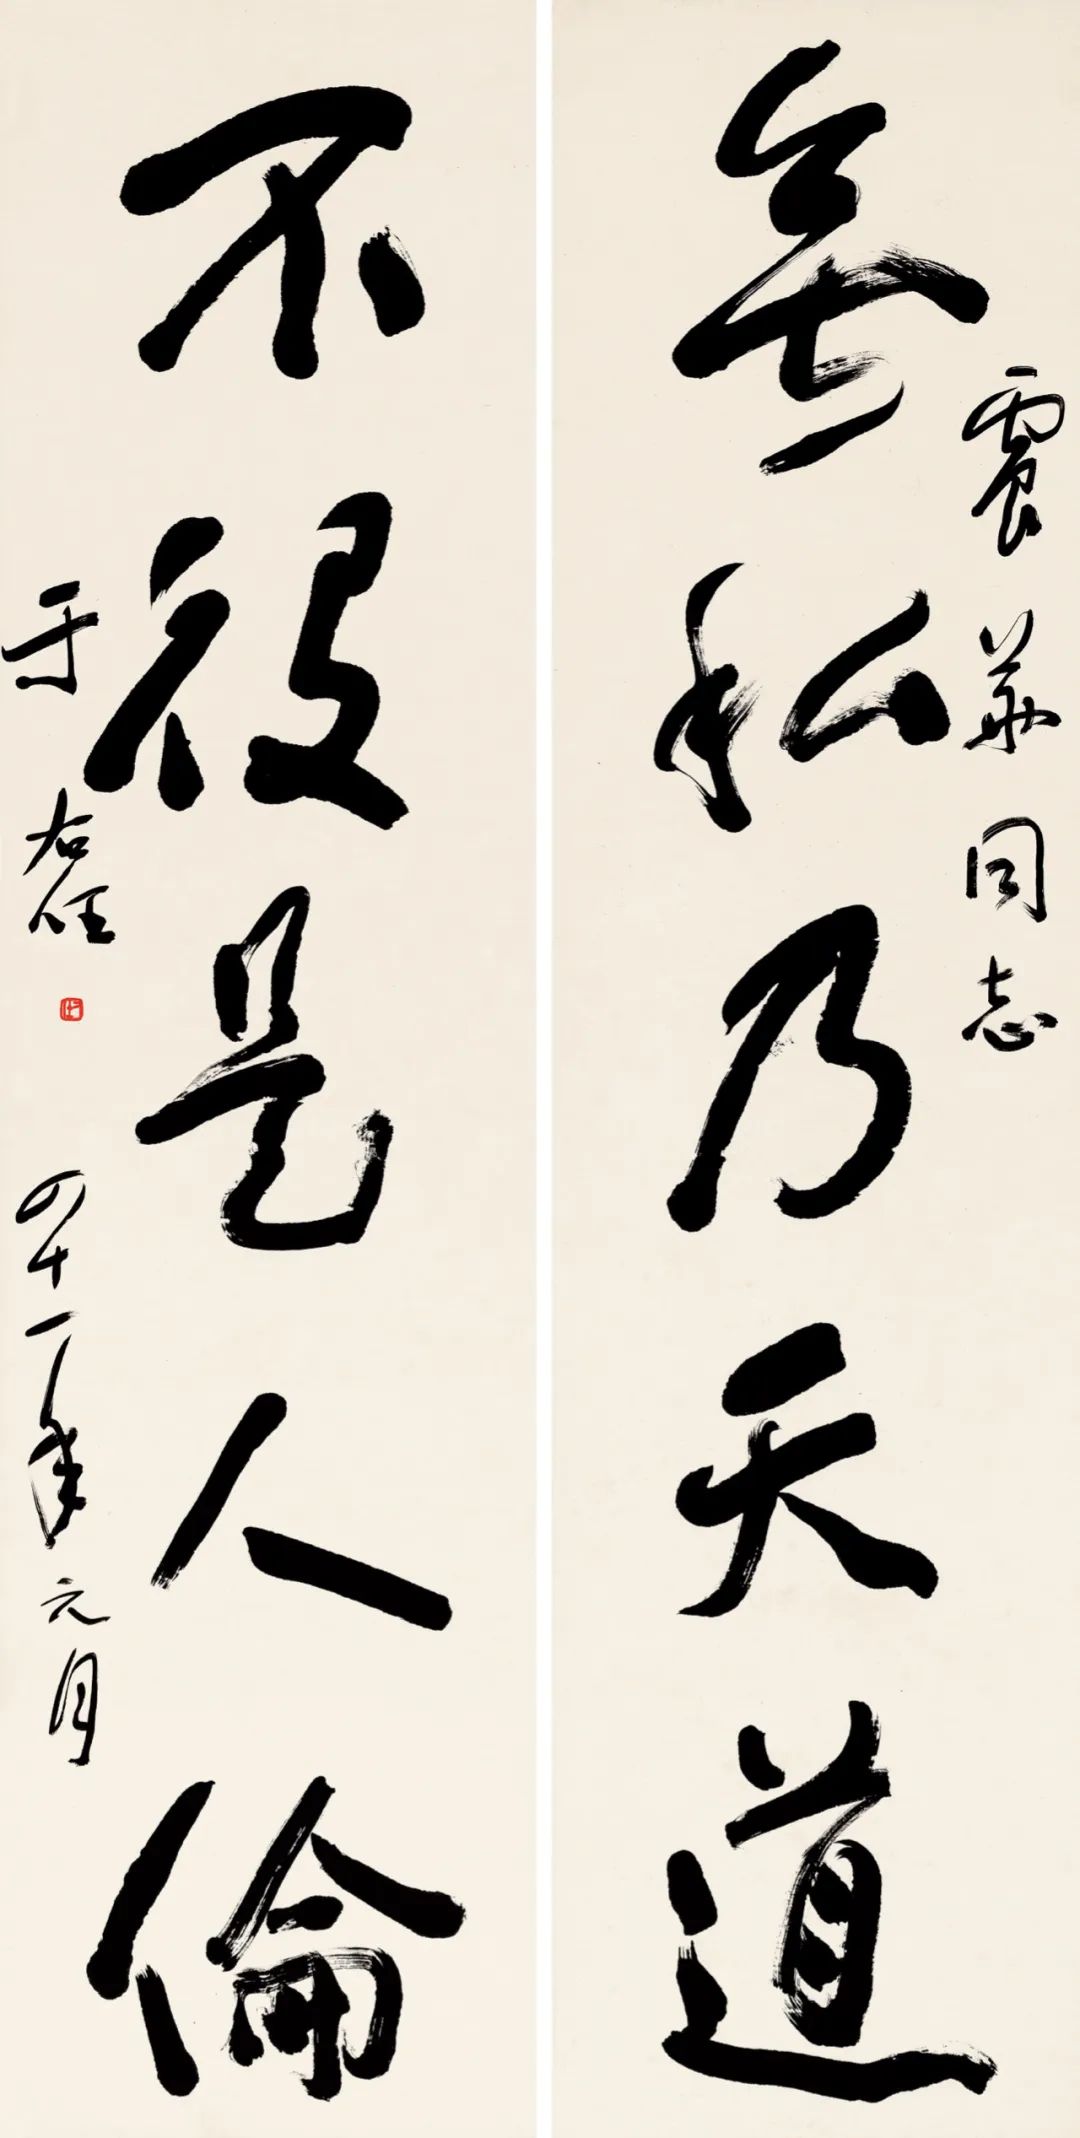 無私乃天道
震華同志
不役是人倫
于右任
四十一年元月